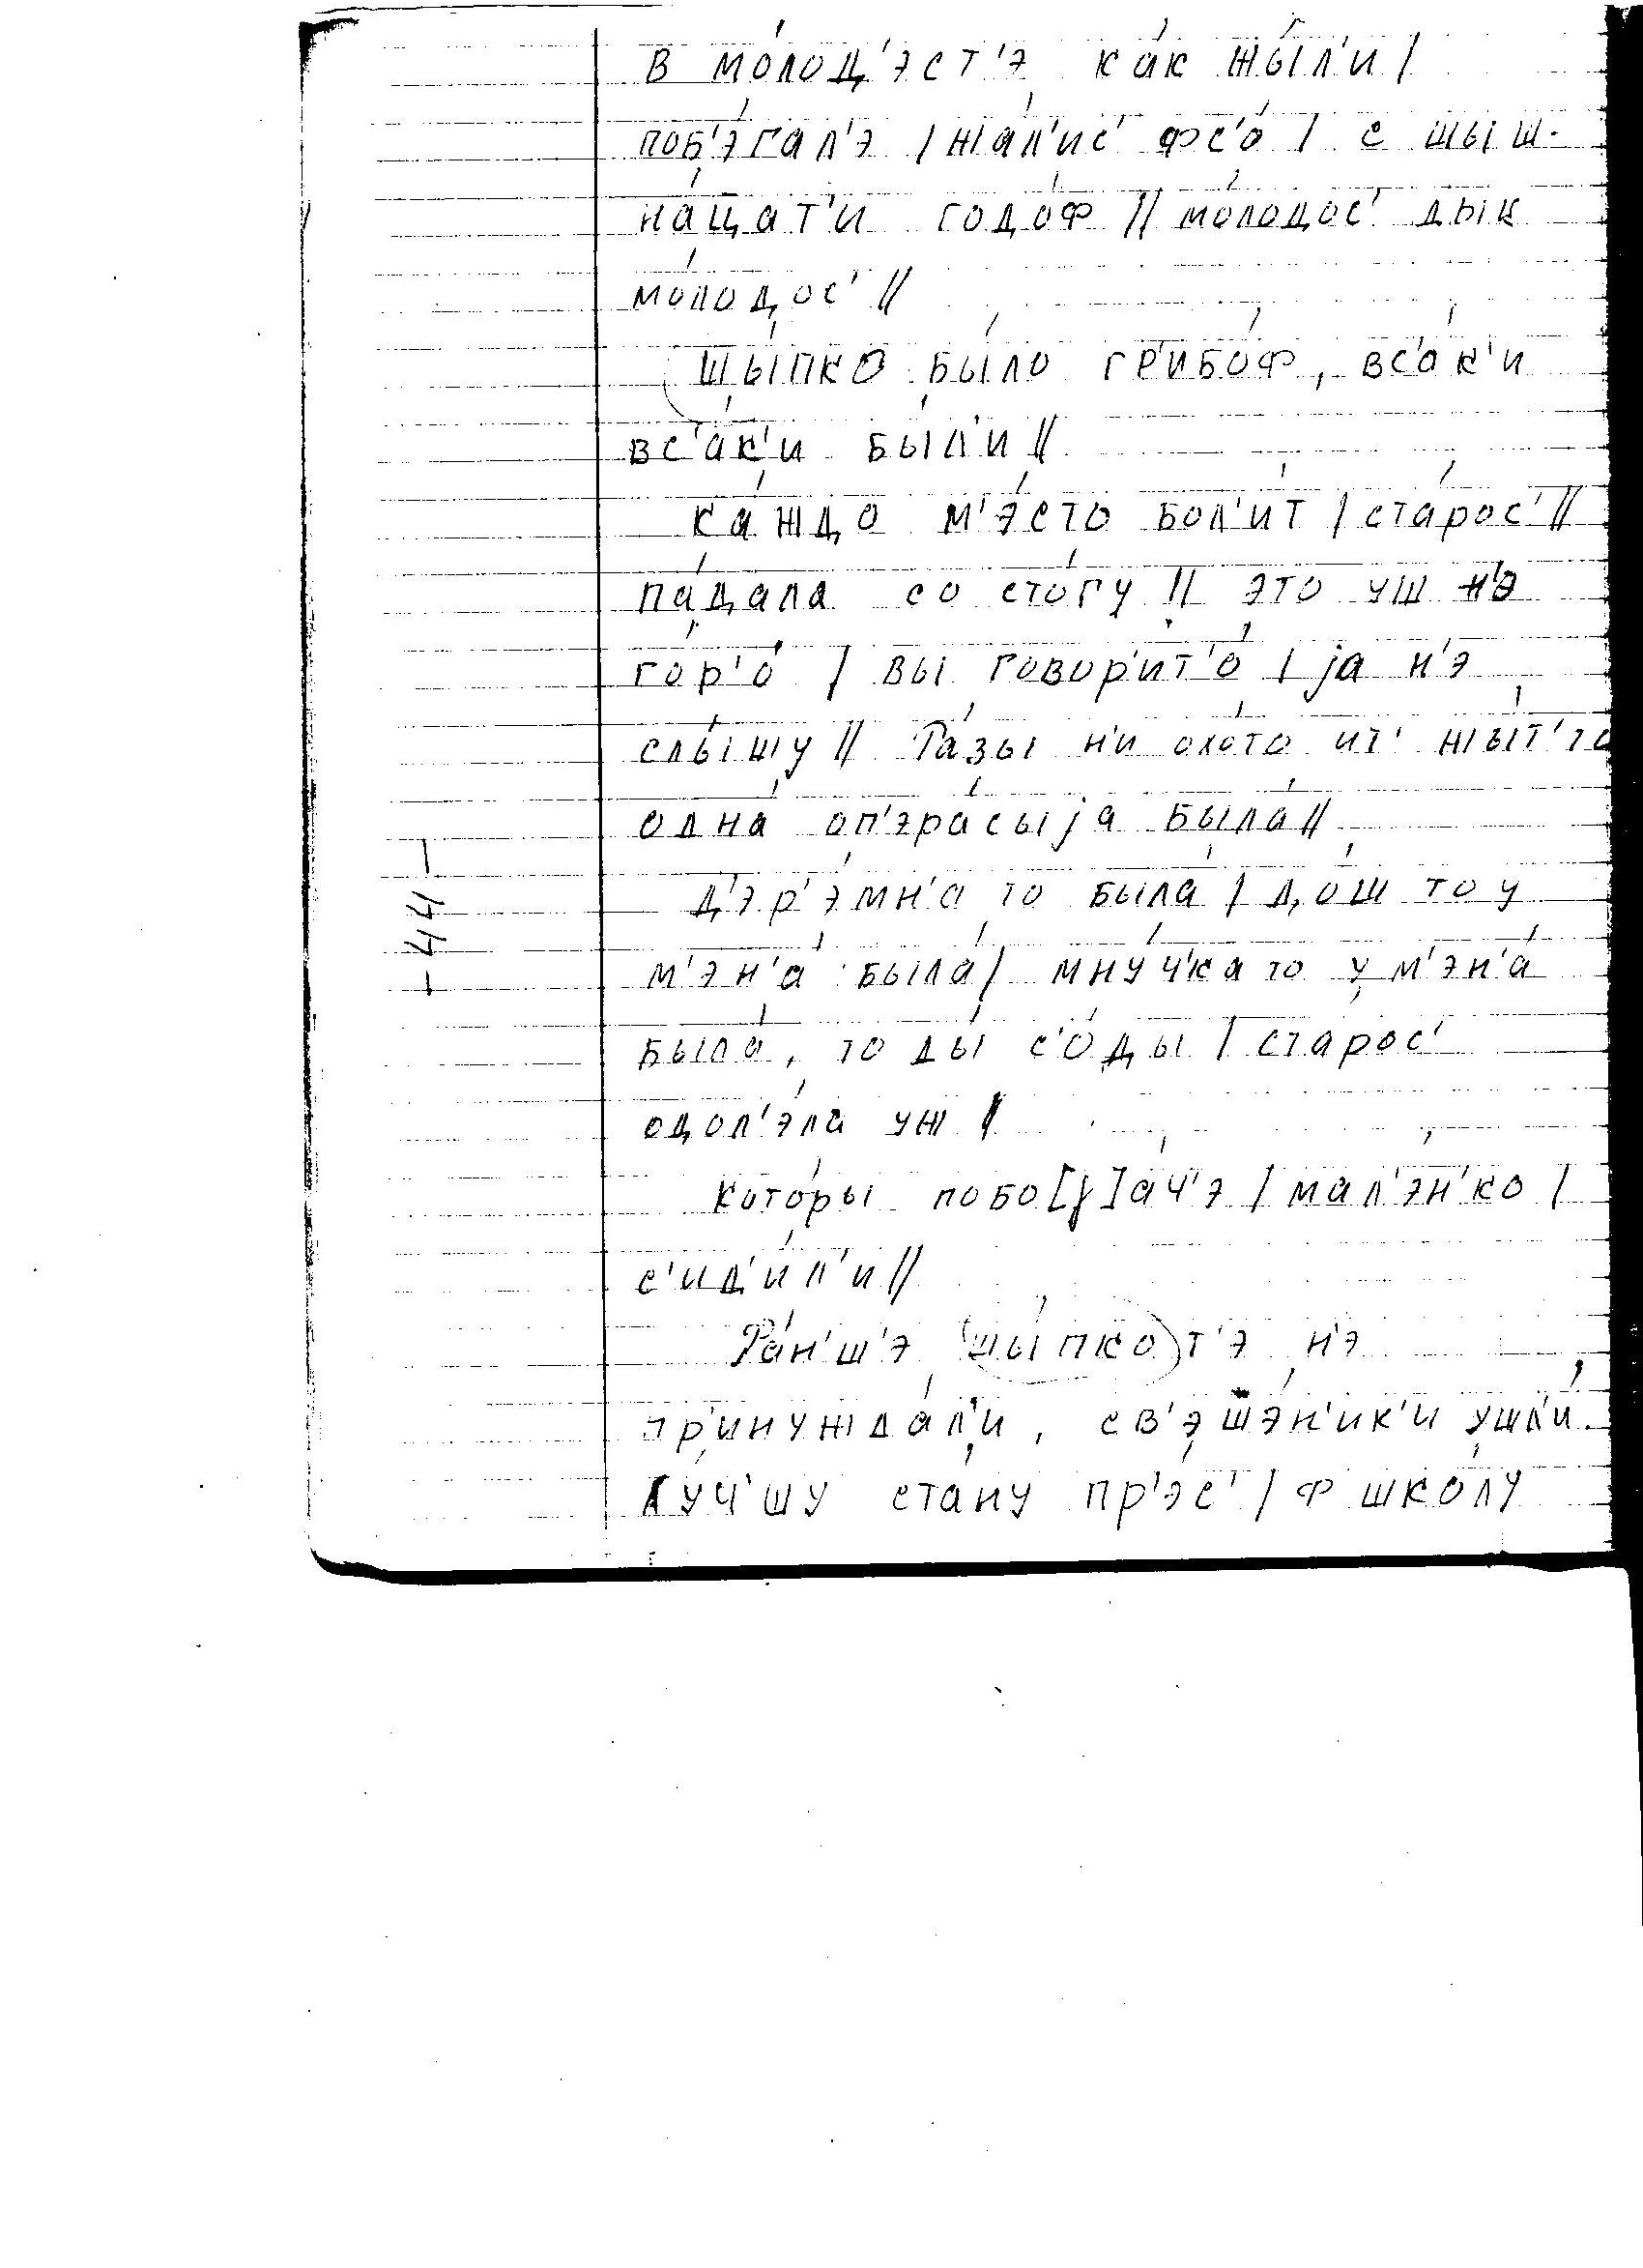 в мо́лод'эст'э ка́к жы́л'и /
поб'э́гал'э / жа́л'ис' фс'о́ / с шыш-
на́цат'и годо́ф // мо́лодос' дык
мо́лодос' //
шы́пко бы́ло гр'ибо́ф, вс'а́к'и
вс'а́к'и бы́л'и //
ка́ждо м'э́сто бол'и́т / ста́рос' //
па́дала со сто́гу // это уш н'э
гор'о́ / вы говор'ит'о́ / jа н'э
слы́шу // Ра́зы н'и охо́то ит' жы́т'то
одна́ оп'эра́сыjа была́ //
д'эр'э́мн'а то была́ / до́ш то у
м'эн'а́ была́ / мну́ч'ка то у м'эн'а́
была́, то ды́ с'о́ды / ста́рос'
одол'э́ла уж /
кото́ры побо[γ]а́ч'э / мал'э́н'ко /
с'ид'и́л'и //
Ра́н'ш'э шы́пко т'э н'э
пр'инужда́л'и, св'эшэ́н'ик'и ушл'и́
лу́ч'шу ста́ну пр'эс' / ф шко́лу
-44-